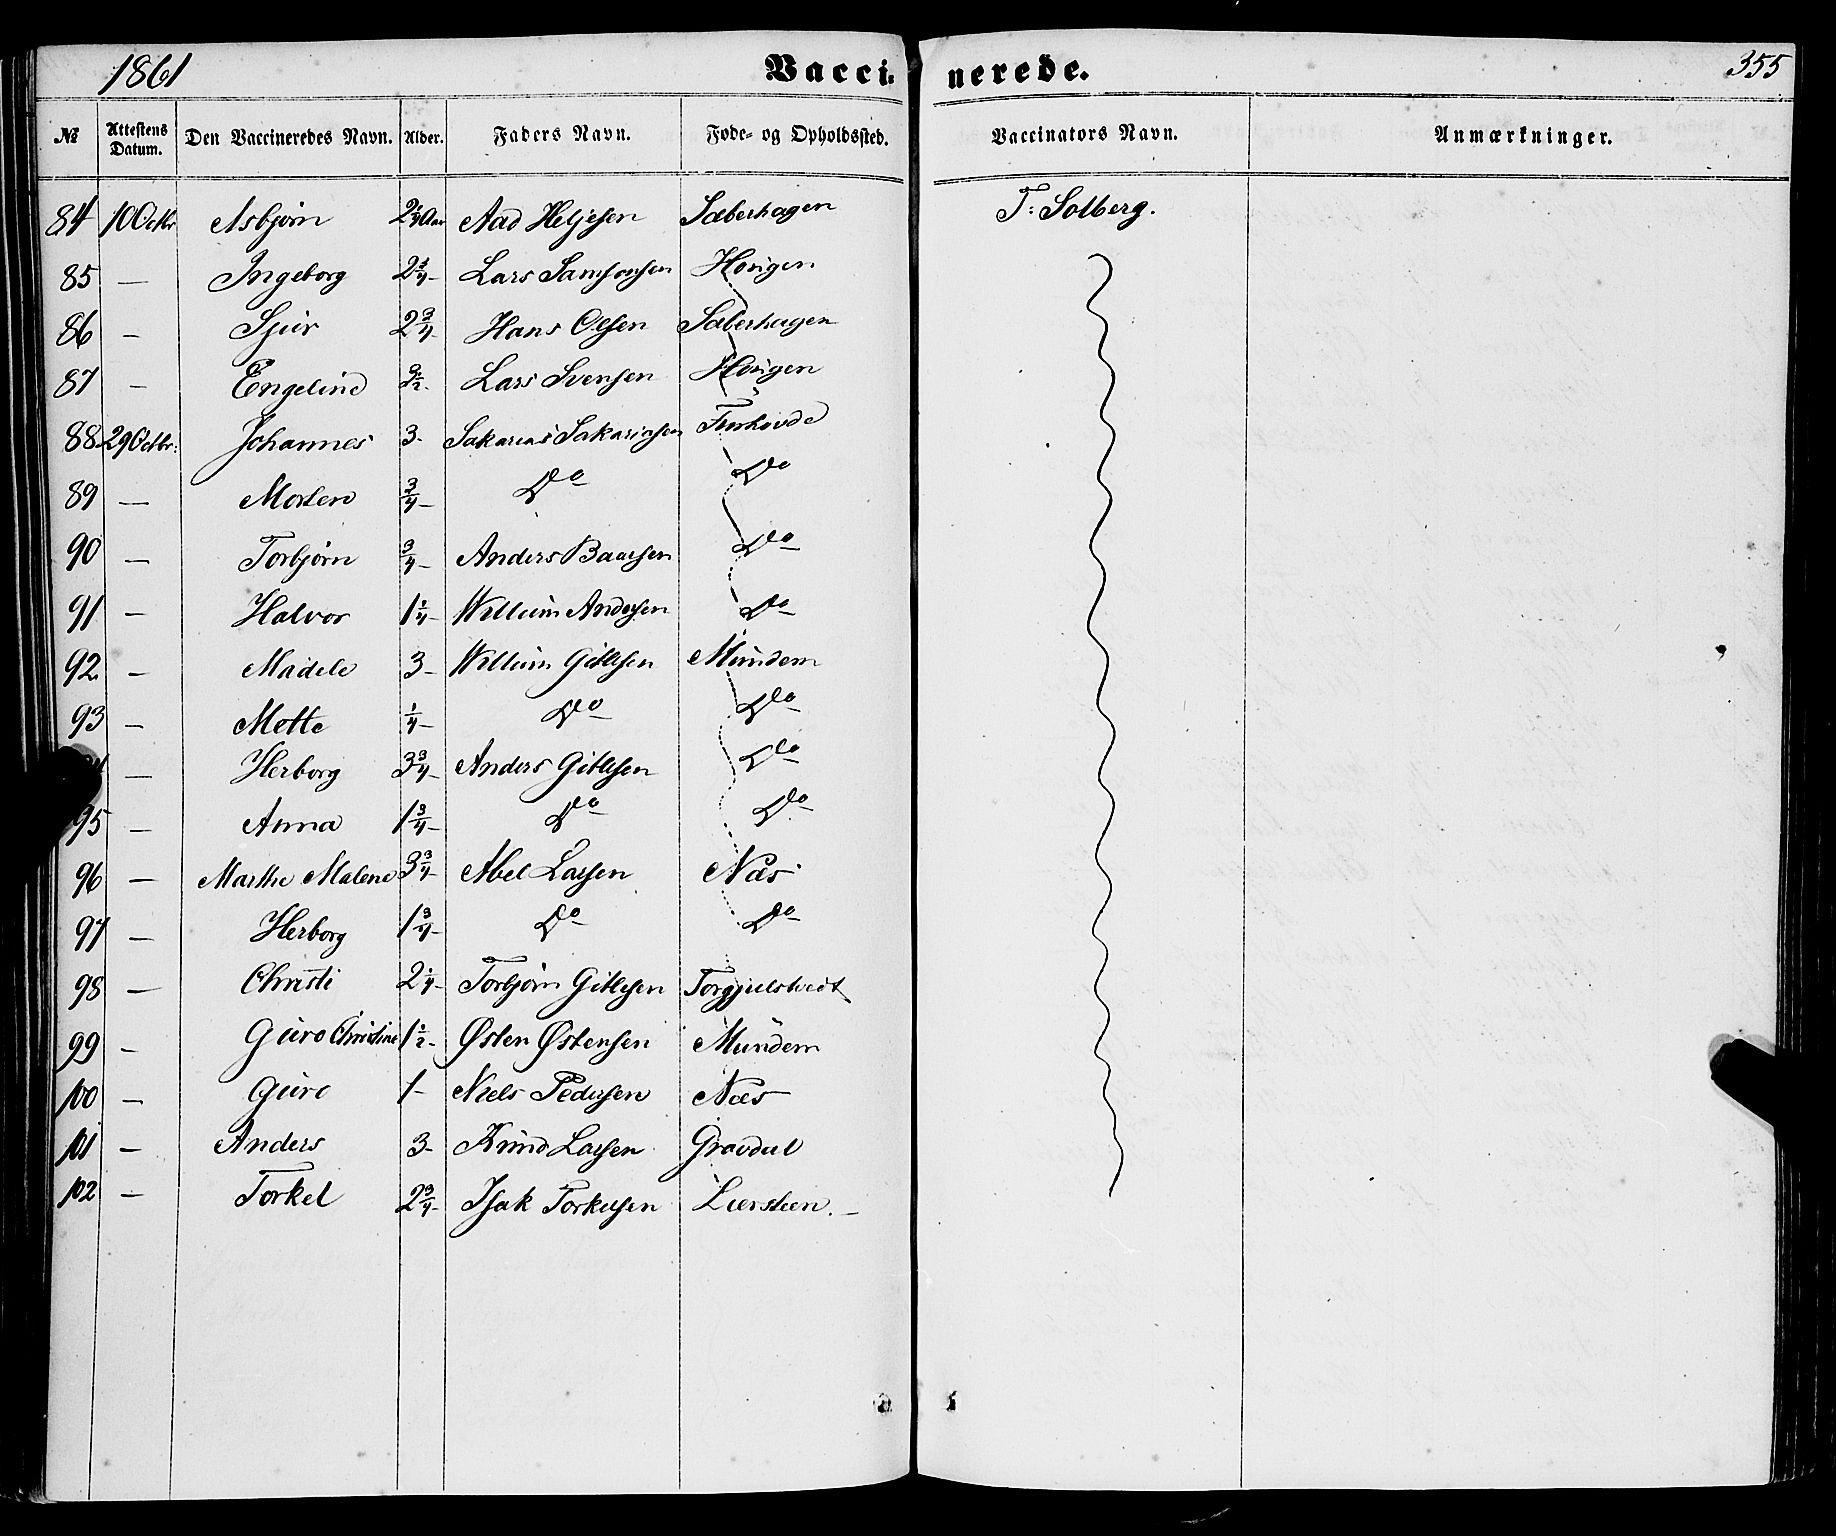 1861 Vacci- nerede. 355
№ Attestens Datum. Den Vaccineredes Navn. Alder. Faders Navn. Føde- og Opholdssted. Vaccinators Navn. Anmærkninger.
84 10 Octbr Asbjørn Aad Heljesen Sæberhagen T: Solberg.
85 — Ingeborg 2 1/4 – Lars Samsonsen Hovigen
86 – Sjur 2 3/4 – Hans Olsen Sæberhagen
87 – Engeline Lars Svensen Hovigen
88. 29 Octbr: Johannes 3 – Sakarias Sakariasen
89 — Morten 3/4 – Do Do
90 – Torbjørn 3/4 – Anders Baarsen Do
91 – Halvor 1 1/4 – Willum Andersen Do
92. – Madele 3 – Willum Gitlesen Mundem
93 – Mette 1/4 – Do Do
– Herborg 3 3/4 – Anders Gitlesen Do
95 – Anna 1 3/4 – Do Do
96 – Marthe Malene 3 3/4 – Abel Larsen Næs
97 – Herborg 1 3/4 – Do Do
98 — Christi 2 1/4 – Torbjørn Gitlesen Torgjulstvedt
99 – Guro Christine 1 1/2 – Østen Østensen Mundem
100 – Guro 1 – Niels Pedersen Næs
101 – Anders 3 – Knud Larsen Gravdal
102 – Torkel 2 3/4 – Isak Torkelsen Liersteen. –